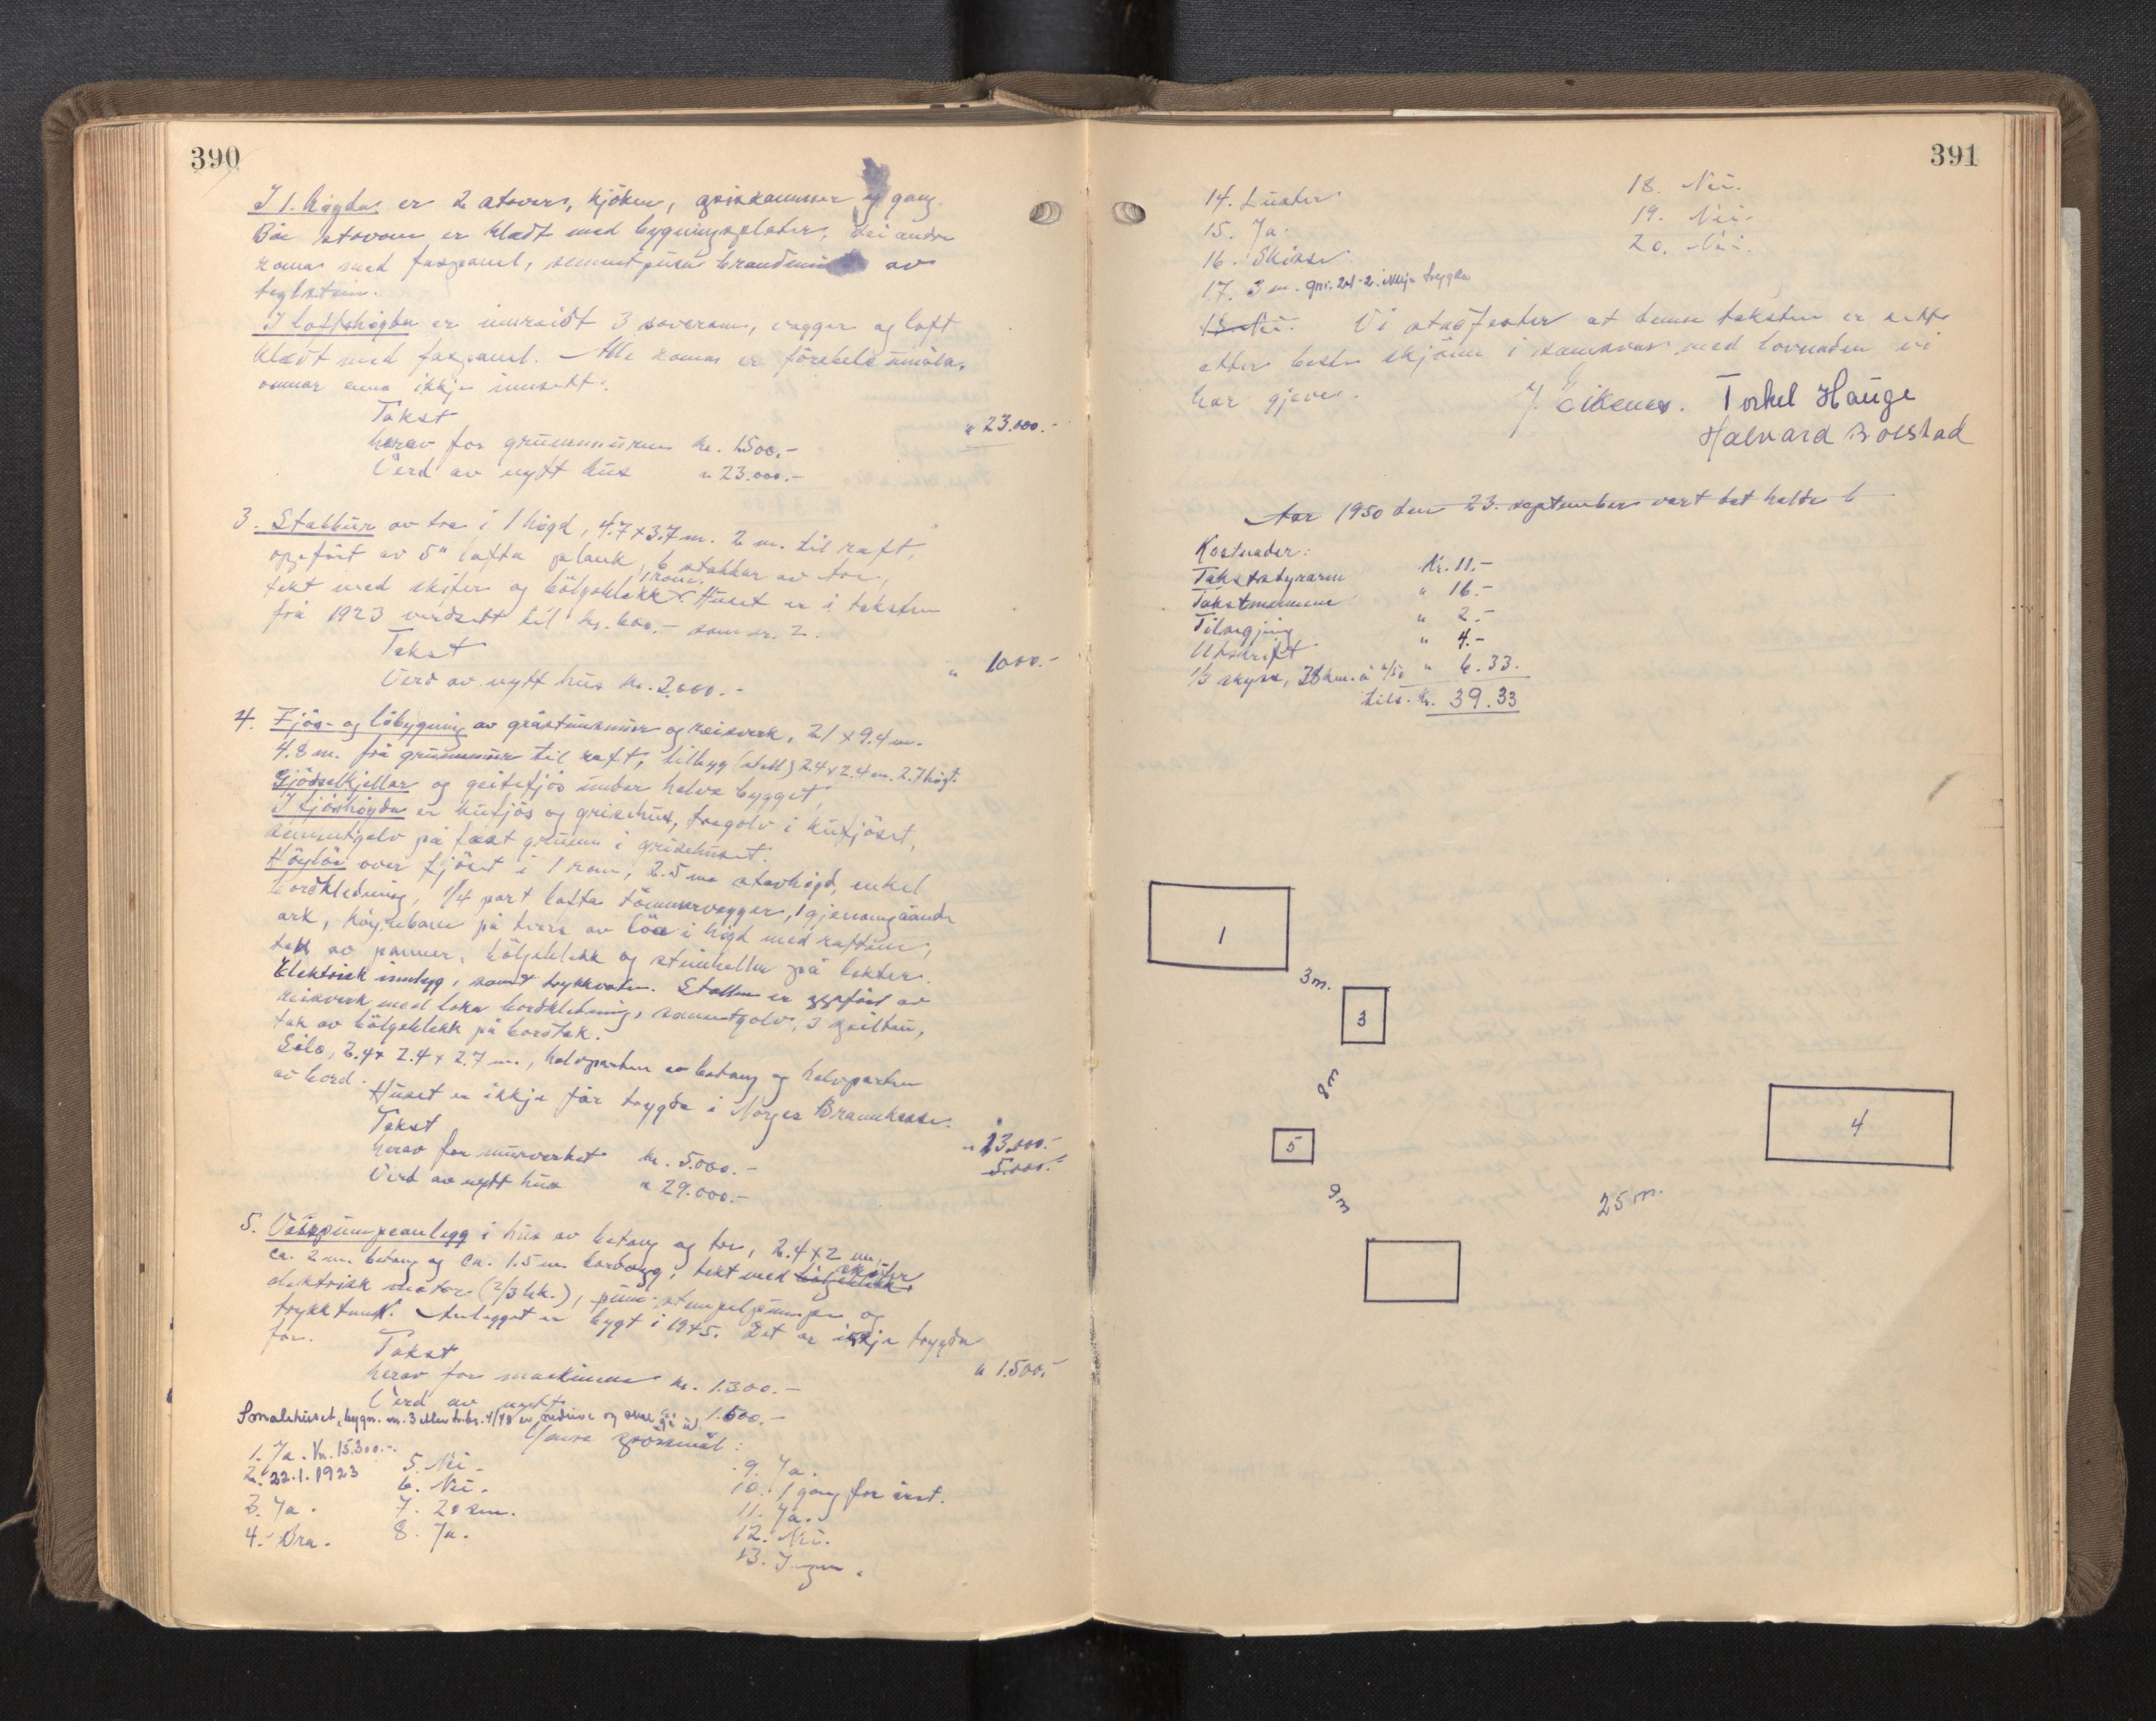 390
I 1. høgda er 2 stover, kjöken, grisekammer og gang.
Båe stovone er klædt med bygningsplater, dei andre
roma med faspanel, sementpussa brandmur av
teglstein.
I loftshøgda er innreidt 3 soverom, vegger og loft
klædt med faspanel. Alle romma er förebels umåla,
omnar enno ikkje innsett.
Takst " 23.000.-
herav for grunnmuren kr. 1500.-
Verd av nytt hus " 23.000.-
3. Stabbur av tre i 1 høgd, 4.7 x 3.7 m. 2 m. til raft,
oppfört av 5" lafta plank, 6 stabbar av tre,
tekt med skifer og bölgeblekk, 1 rom. Huset er i taksten
frå 1923 verdsett til kr. 600.- som nr. 2.
Takst " 1000.-
Verd av nytt hus kr. 2.000.-
4. Fjös- og löbygning av gråsteinsmur og reisverk, 21 x 9.4 m.
4.8 m. frå grunnmur til raft, tilbygg (stall) 2.4 x 2.4 m. 2.7 högt.
Gjödselkjellar og geitefjös under halve bygget,
I fjöshøgda er kufjös og grisehus, tregolv i kufjöset,
sementgolv på fast grunn i grisehuset.
Höylöe over fjöset i 1 rom, 2.5 m stavhögd, enkel
bordkledning, 1/4 part lafta tömmervegger, 1 gjenomgåande
ark, köyrebane på tvers av löa i högd med raftene,
tak av panner, bölgeblekk og steinheller på lekter.
Elektrisk innlegg, samt trykkvatn. Stallen er oppfört av
reisverk med loka bordkledning, sementgolv, 3 spiltau,
tak av bölgeblekk på bordtak.
Silo, 2.4 x 2.4 x 2.7 m., halvparten av betong og halvparten
av bord.
Huset er ikkje för trygda i Norges Brannkasse.
Takst " 23.000.-
herav for murverket kr. 5.000.- 5.000.-
Verd av nytt hus " 29.000.-
5. Vasspumpeanlegg i hus av betong og tre, 2.4 x 2 m.
ca. 2 m. betong og ca. 1.5 m. bordvegg, tekt med bölgeblekk, skifer
elektrisk motor (2/3 hk.), stempelpumpe og
trykktank. Anlegget er bygt i 1945. Det er ikkje trygda
för.
Takst " 1.500.-
herav for maskinene kr. 1.300.-
Verd av nytt kr. 1.600.-
Smalehuset, bygn. nr. 3 etter br.tr. 4/48 er nedrive og skal gå ut.
Ymse spörsmål:
1. Ja. Kr. 15.300.-. 5. Nei. 9. Ja.
2. 22.1.1923 6. Nei. 10. 1 gong for året.
3. Ja. 7. 20 km. 11. Ja.
4. Bra. 8. Ja. 12. Nei.
13. Ingen.
391
14. Luster 18. Nei.
15. Ja. 19. Nei.
16. Skisse 20. Nei.
17. 3 m. ikkje trygda
18. Nei. Vi stadfester at denne taksten er sett
etter beste skjönn i samsvar med lovnaden vi
har gjeve.
J. Eikenes. Torkel Hauge
Halvard Bolstad
Aar 1950 den 23. september vart det halde b
Kostnader:
Takststyraren Kr. 11.-
Takstmennene " 16.-
Tilsegjing " 2.-
Utskrift " 4.-
1/3 skyss, 38 km. à -/50 " 6.33.
tils. Kr. 39.33
1
3m.
3
8m
5
4
9m
25 m.